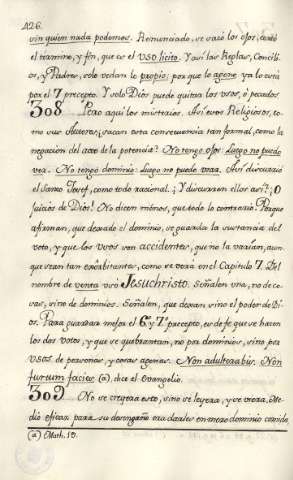 426.
sin quien nada podemos. Renunciado, se sacó los ojos, contó
el termino, y fin, que es el uso licito. Y así las Reglas, Concili-
os, y Padres, solo vedan lo propio; por que lo ageno ya lo está
por el 7 precepto. Y solo Dios puede quitar los usos, ó pecados
308 Pero aqui los misterios. Asi esos Religiosos, co-
mo sus Autores, sacan esta consecuencia tan formal, como la
negacion del acto de la potencia? No tengo ojos: luego no puedo
ver. No tengo dominio: luego no puedo usar. Así discurrió
el santo Josef, como todo racional. ¿Y discurren ellos así? ¡O
juicios de Dios! No dicen ménos, que todo lo contrario. Porque
afirman, que dexado el dominio, se guarda la sustancia del
voto, y que los usos son accidentes, que no la varían, aun
que sean tan exôrbitantes, como se verá en el Capitulo 7. Del
nombre de venta usó Jesuchristo. Señalen una, no de co-
sas, sino de dominios. Señalen, que dexan sino el poder de Di-
os. Para guardar mejor el 6 y 7 precepto, es de fe que se hacen
los dos votos, y que se quebrantan, no por dominios, sino por
usos de personas, y cosas agenas. Non adulterabis. Non
furtum facies (a), dice el evangelio.
309 No se creyera esto, sino se leyera, y se viera. Me-
dio eficaz para su desengaño era darles en mero dominio comida,
(a) Math. 19.